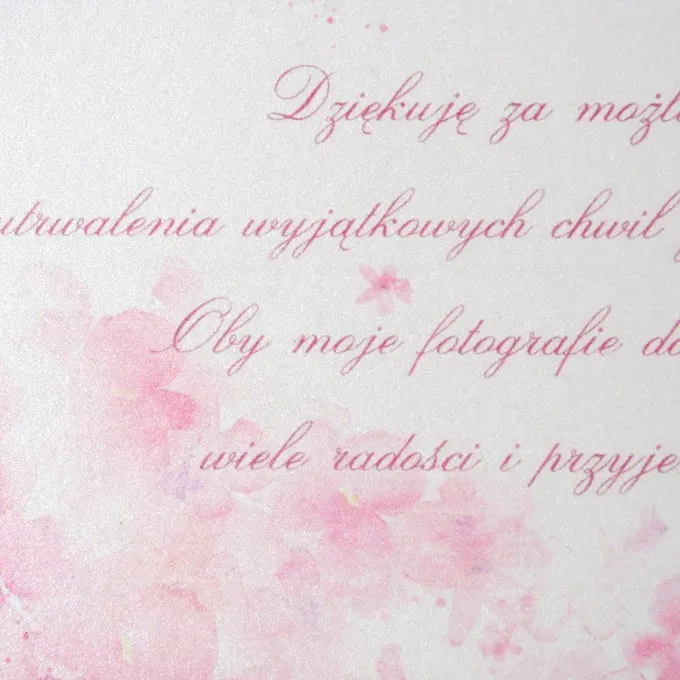 Dziękuję za możli
utrwalenia wyjątkowych chwil
Oby moje fotografie do
wiele radości i przyje